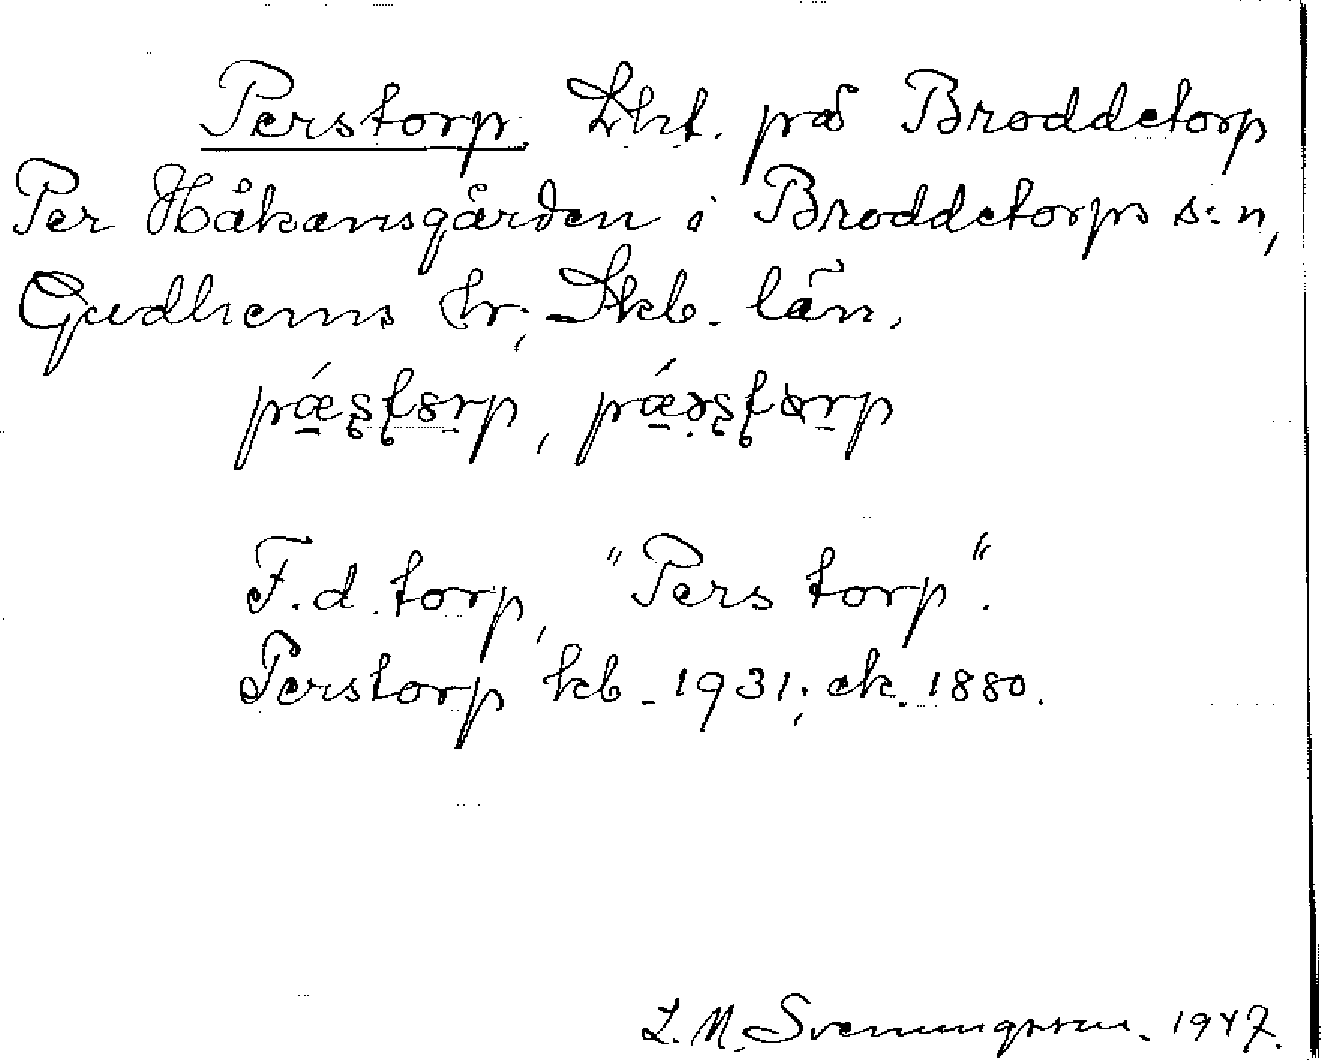 Perstorp. Lht. på Broddetorp
Per Håkansgården i Broddetorps s:n,
Gudhems hr, Skb. län.
F.d. torp, "Pers torp".
Perstorp kb 1931; ek. 1880.
L. M. Svenungsson. 1947.